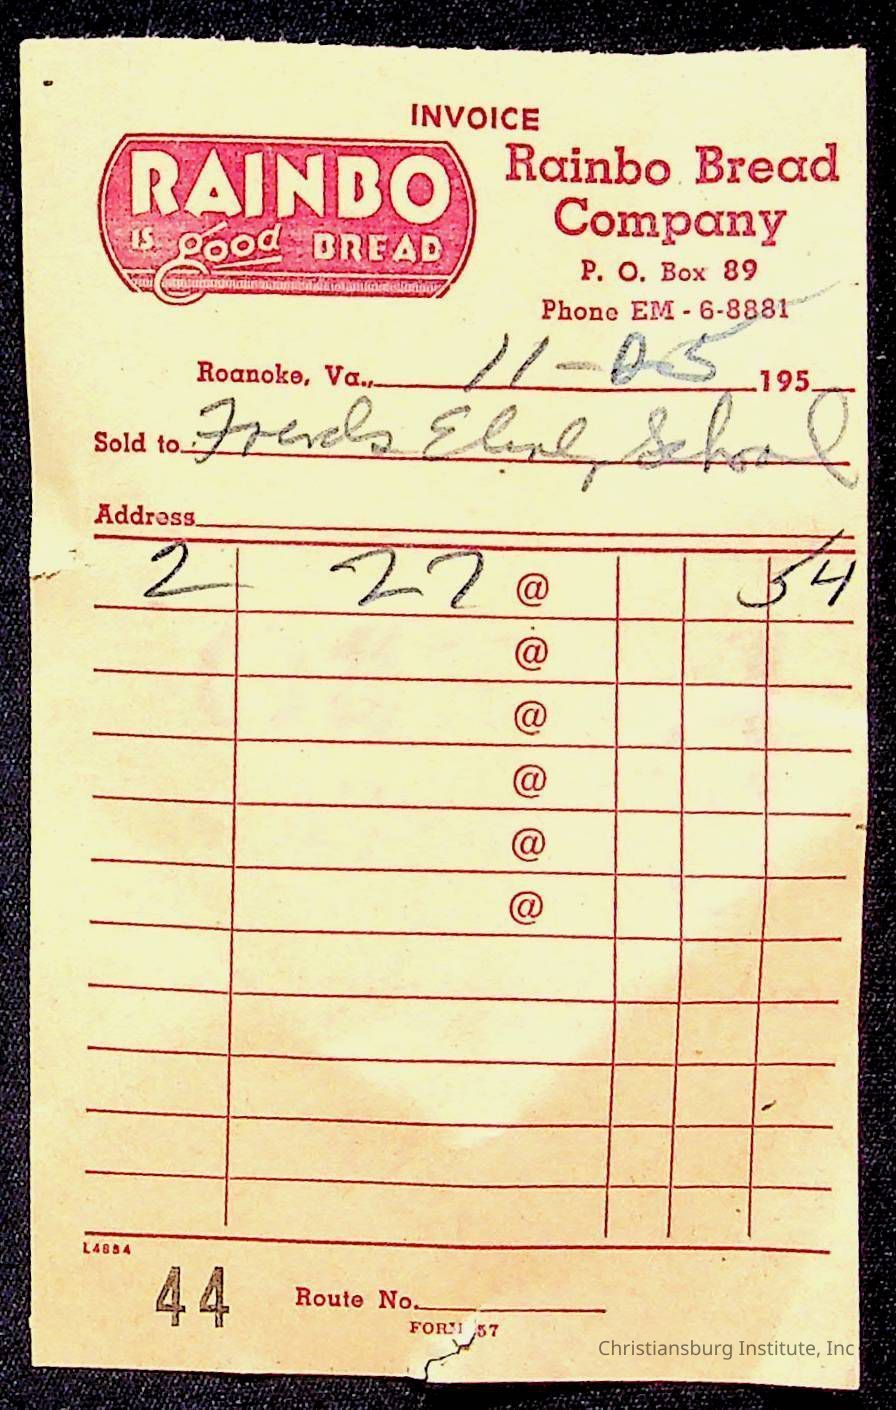 INVOICE
RAINBO
IS good BREAD
Rainbo Bread
Company
P. O. Box 89
Phone EM - 6-8881
Roanoke, Va., 11- 195
Sold to School
Address
2 27 @ 54
@
@
@
@
@
L4884
44 Route No.
FORM 57
Christiansburg Institute, Inc